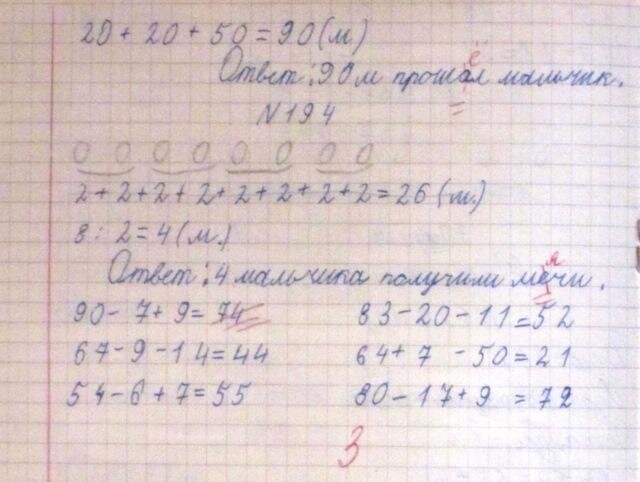 20 + 20 + 50 = 90 (м)
Ответ: 90 м прошал мальчик.
е
N 194
0 0 0 0 0 0 0 0
2 + 2 + 2 + 2 + 2 + 2 + 2 + 2 = 26 (м.)
8 : 2 = 4 (м.)
Ответ: 4 мальчика получили мечи.
я
90 - 7 + 9 = 74 83 - 20 - 11 = 52
67 - 9 - 14 = 44 64 + 7 - 50 = 21
54 - 6 + 7 = 55 80 - 17 + 9 = 72
3